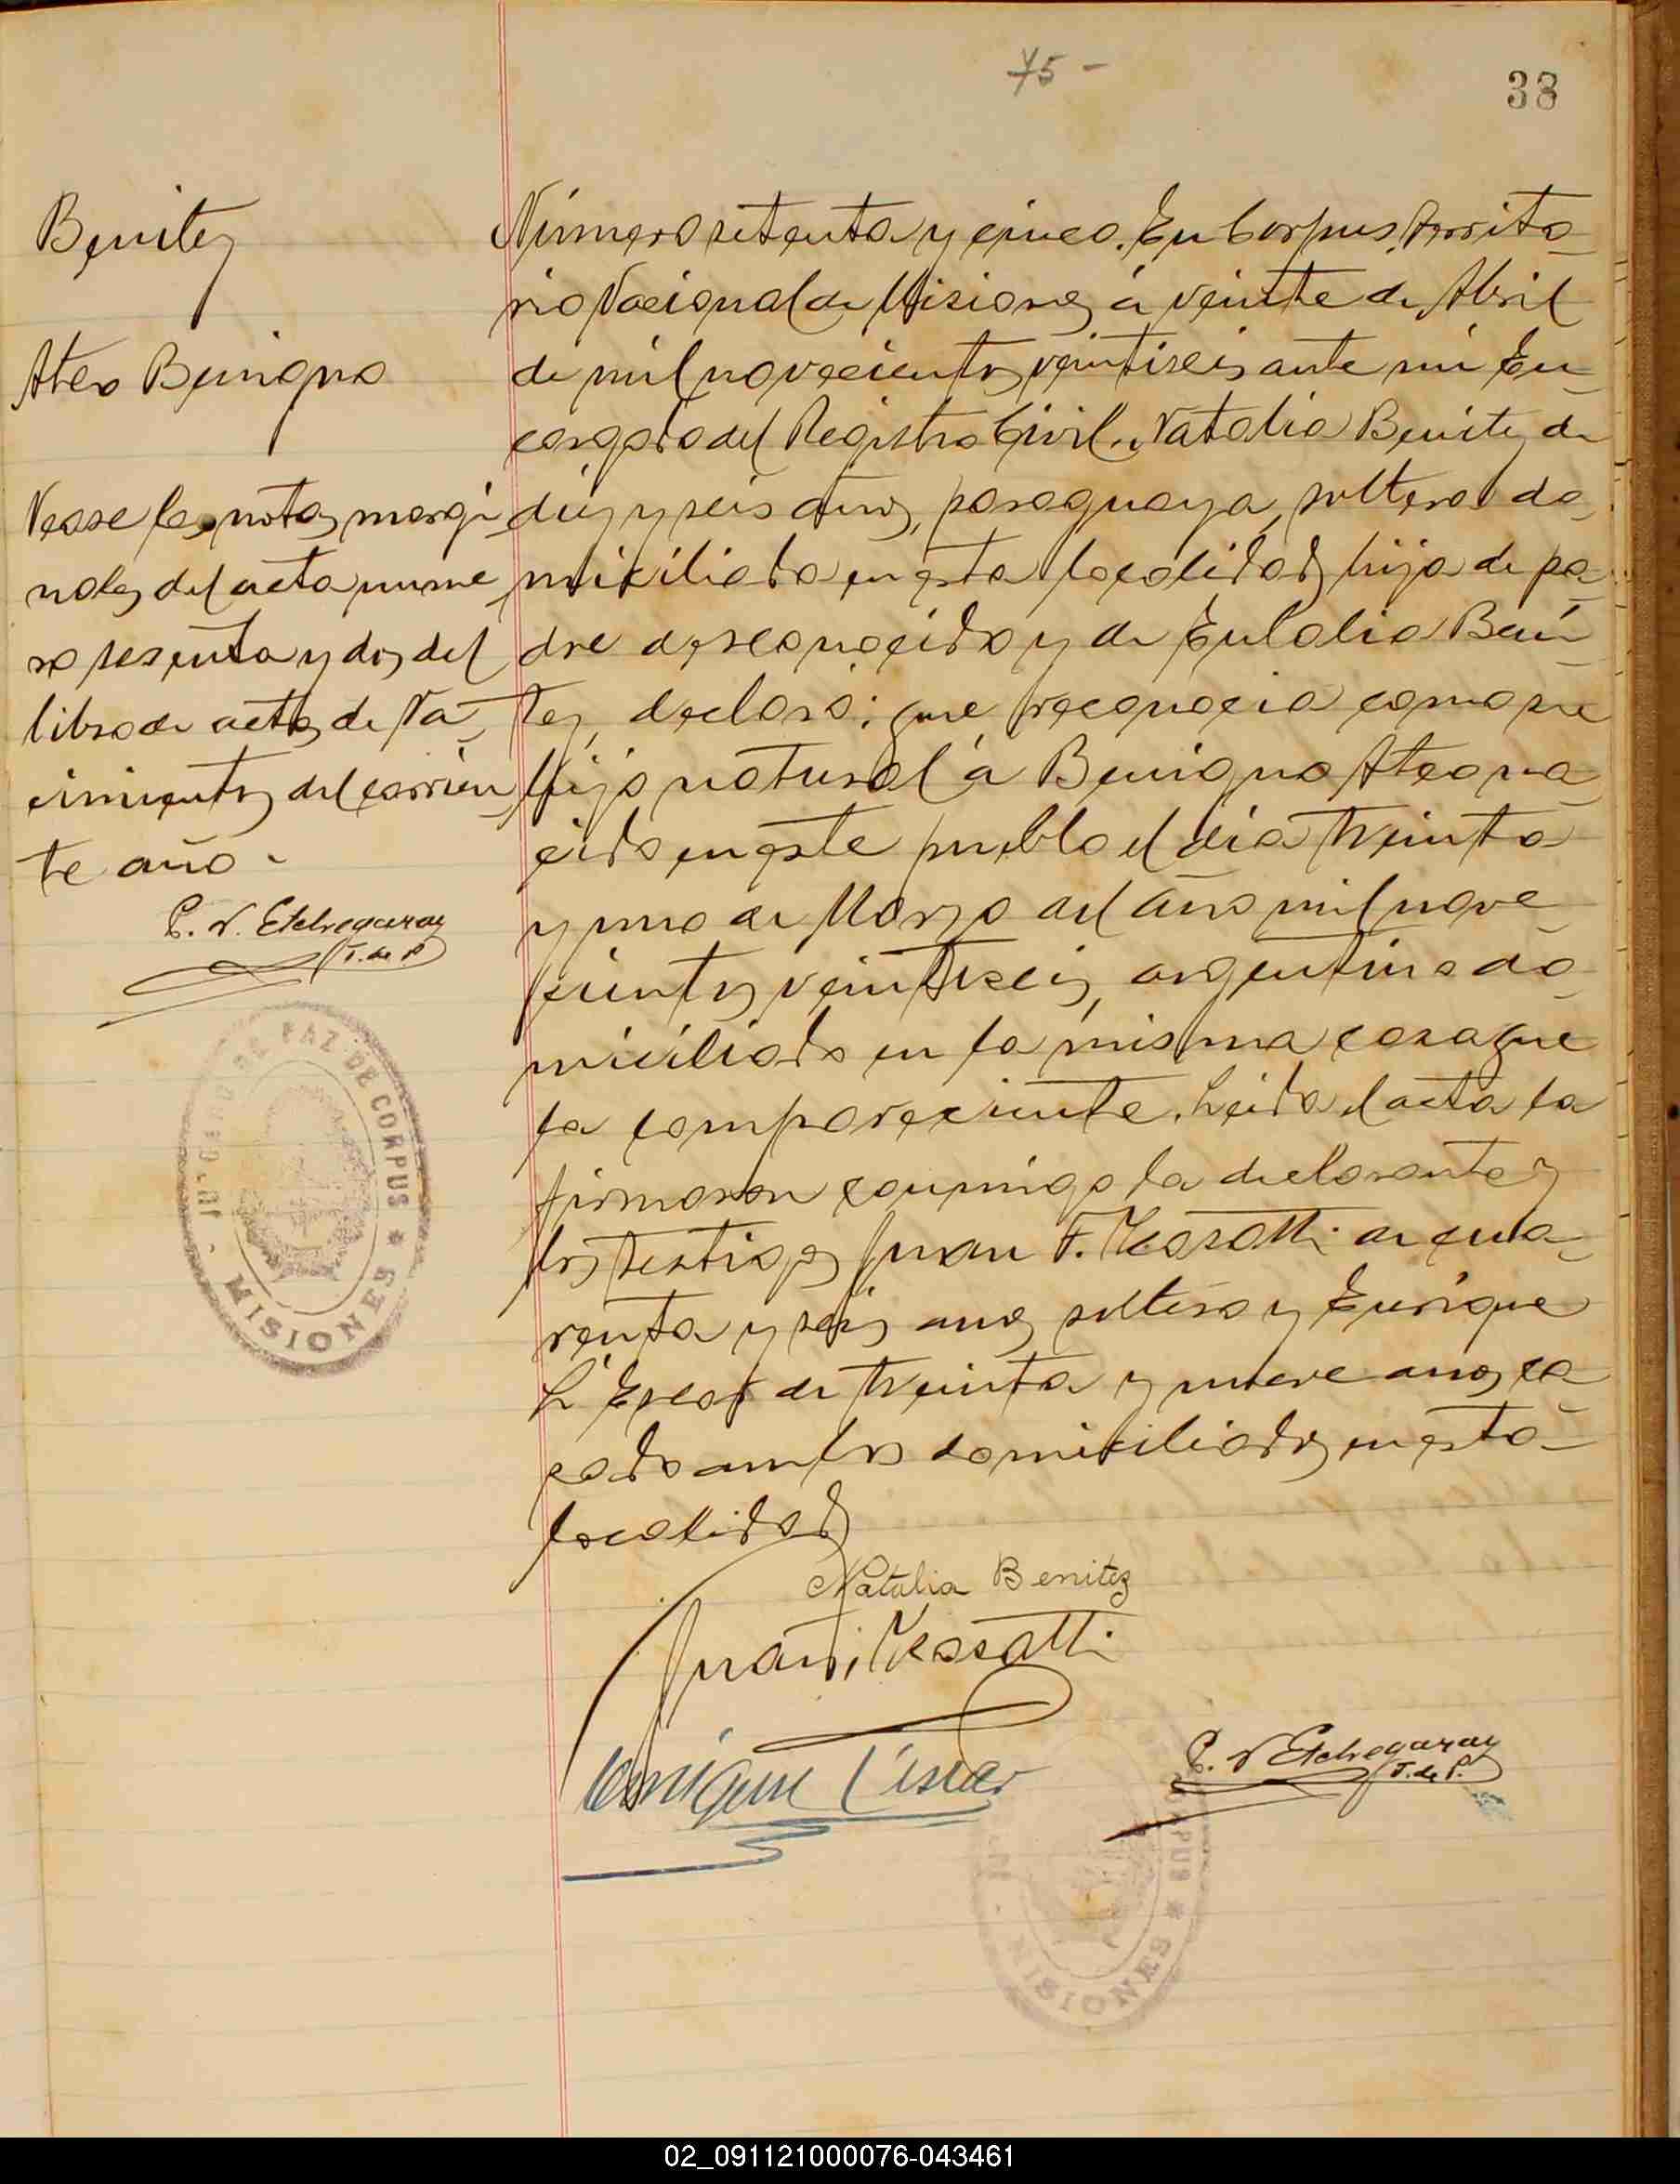 75 -
38
Benitez
Ateo Benigno
Vease las notas margi-
nales del acta nume-
ro sesenta y dos del
libro de actas de Na-
cimientos del corrien-
te año.
P. N. Etchegaray
J. de P.
JUZGADO DE PAZ DE CORPUS * MISIONES -
Número setenta y cinco. En Corpus, Territo-
rio Nacional de Misiones, á veinte de Abril
de mil novecientos veintiseis, ante mi En-
cargado del Registro Civil, Natalia Benitez de
diez y seis años, paraguaya, soltera do-
miciliada en esta localidad, hija de pa-
dre desconocido y de Eulalia Beni-
tez, declaró: que reconocia como su
hijo natural á Benigno Ateo na-
cido en este pueblo el dia treinta
y uno de Marzo del año mil nove-
cientos veintiseis, argentino do-
miciliado en la misma casa que
la compareciente. Leida el acta la
firmaron conmigo la declarante y
los testigos Juan F. de cua-
renta y seis años soltero y Enrique
L'Escar de treinta y nueve años ca-
sado ambos domiciliados en esta
localidad
Natalia Benitez
Juan F.
Enrique L'Escar
P. N. Etchegaray
J. de P.
CORPUS * MISIONES -
02_091121000076-043461